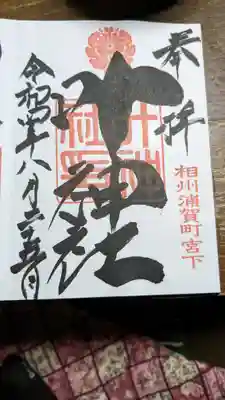 奉拝
相州浦賀町宮下
叶神社
令和四年八月二十五日